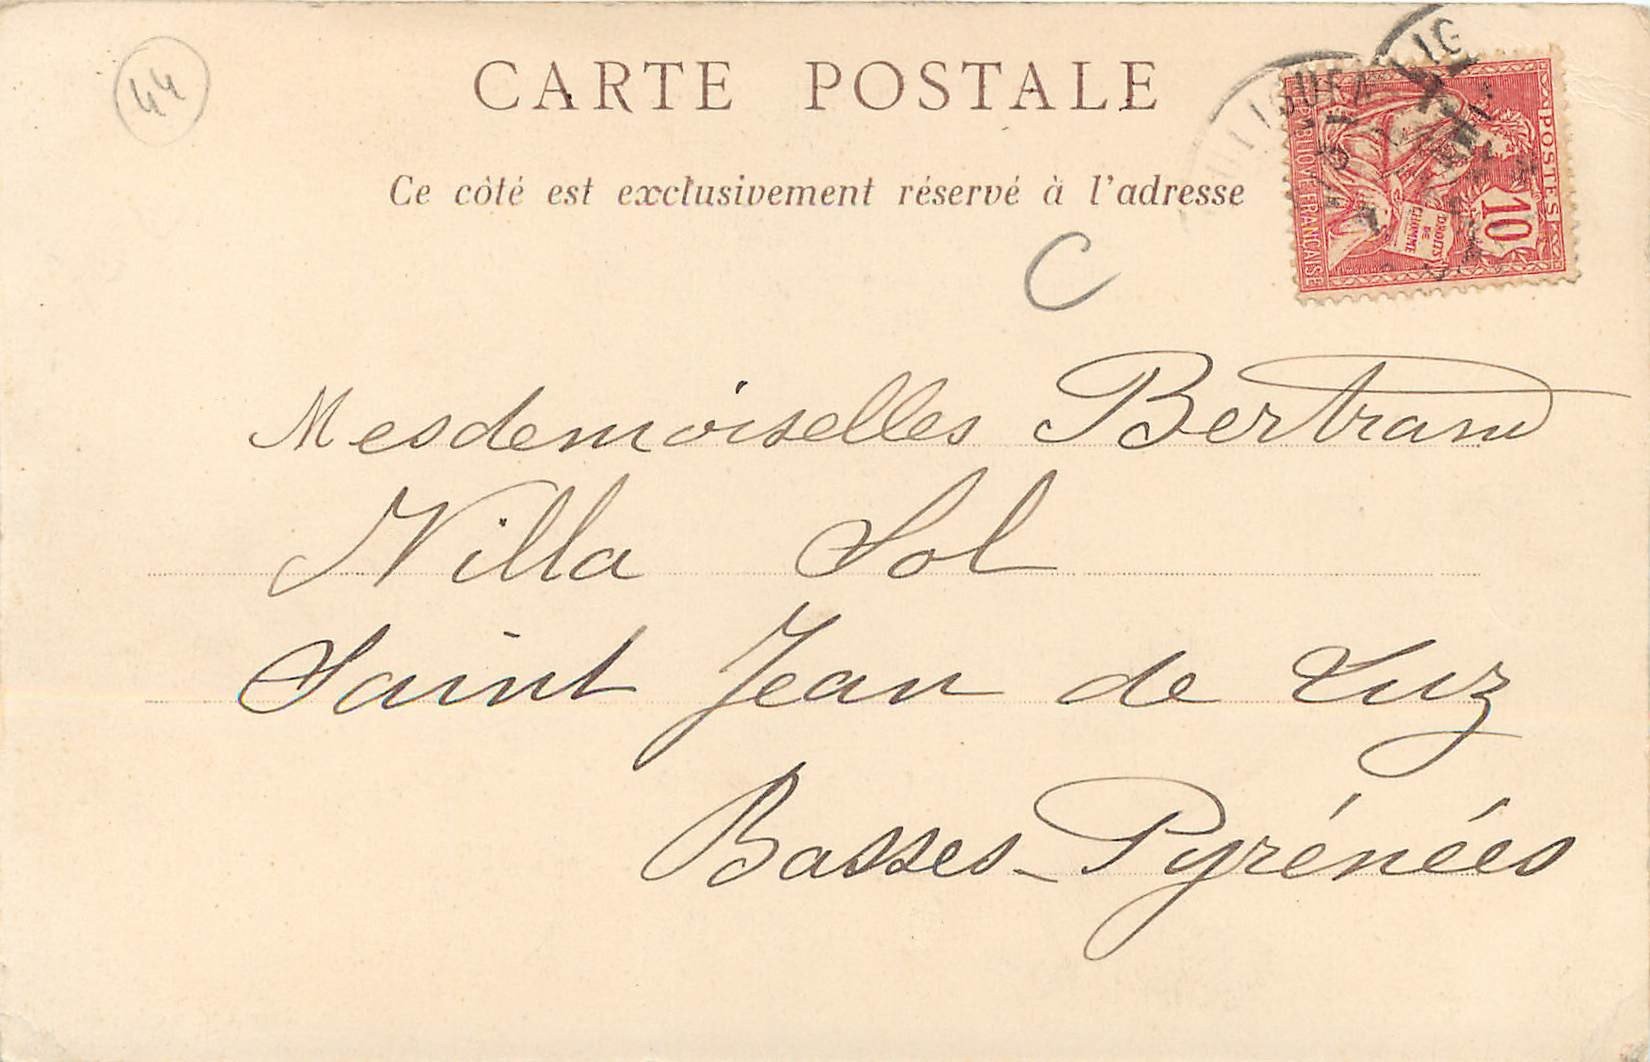 44
CARTE POSTALE
Ce côté est exclusivement réservé à l'adresse
POSTES
10
DROITS DE L'HOMME
REPUBLIQUE FRANCAISE
C
Mesdemoiselles Bertrand
Villa Sol
Saint Jean de Luz
Basses-Pyrénées